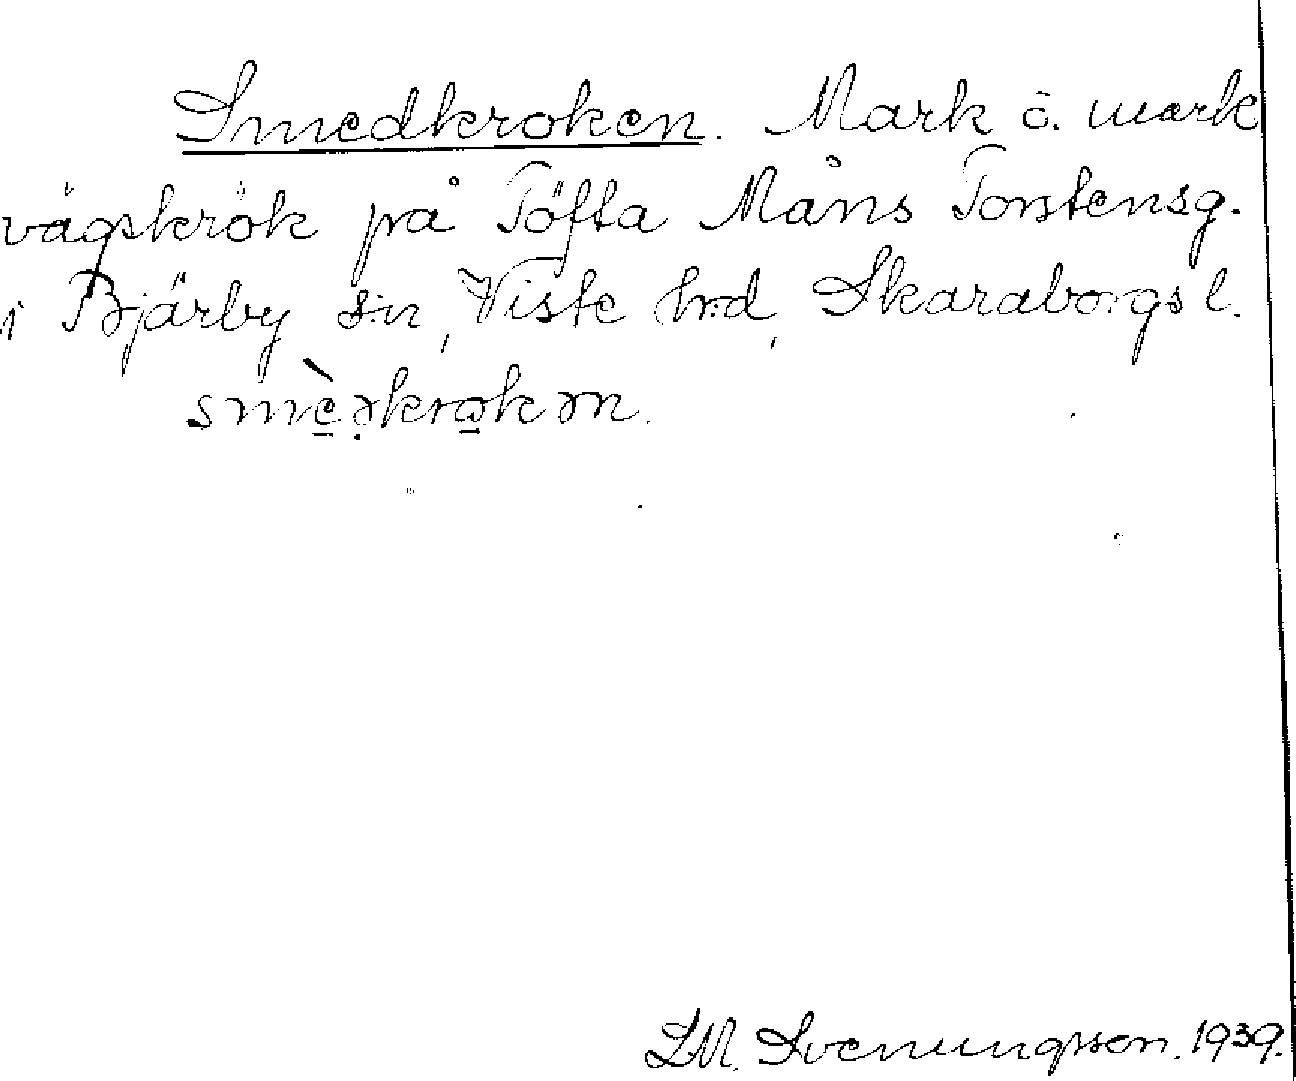 Smedkroken. Mark o. mark
vägskrök på Töfta Måns Torstensg.
i Bjärby sn, Viste hrd, Skaraborgs l.
smè̱ǝ̣kro̱kǝn.
L.M. Svenungsson. 1939.